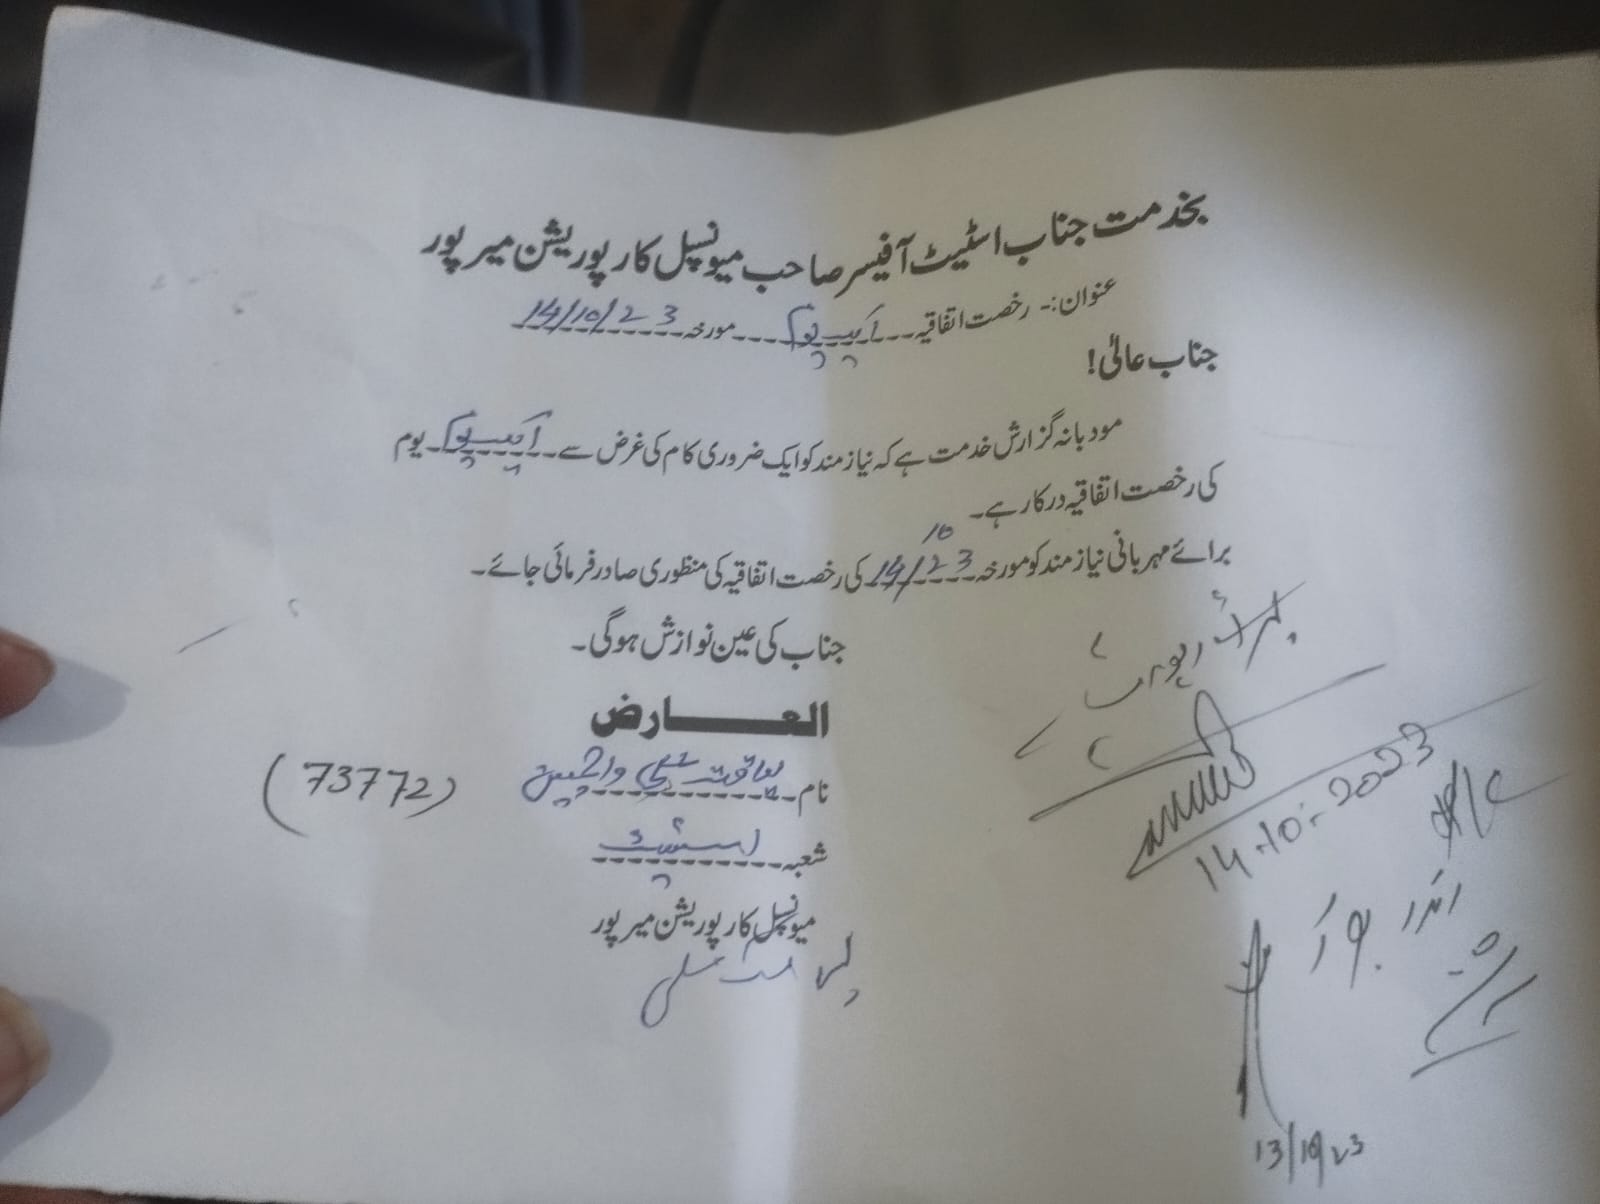 بخدمت جناب اسٹیٹ آفیسر صاحب میونسپل کارپوریشن میرپور
عنوان:- رخصت اتفاقیہ ایک یوم مورخہ 14/10/23
جناب عالیٰ!
مودبانہ گزارش خدمت ہے کہ نیاز مند کو ایک ضروری کام کی غرض سے ایک یوم یوم
کی رخصت اتفاقیہ درکار ہے۔
برائے مہربانی نیاز مند کو مورخہ 14/10/23 کی رخصت اتفاقیہ کی منظوری صادر فرمائی جائے۔
جناب کی عین نوازش ہوگی۔
العارض
نام
(73772)
شعبہ اسٹیٹ
میونسپل کارپوریشن میرپور
برائے رپورٹ
14.10.2023
13/10/23